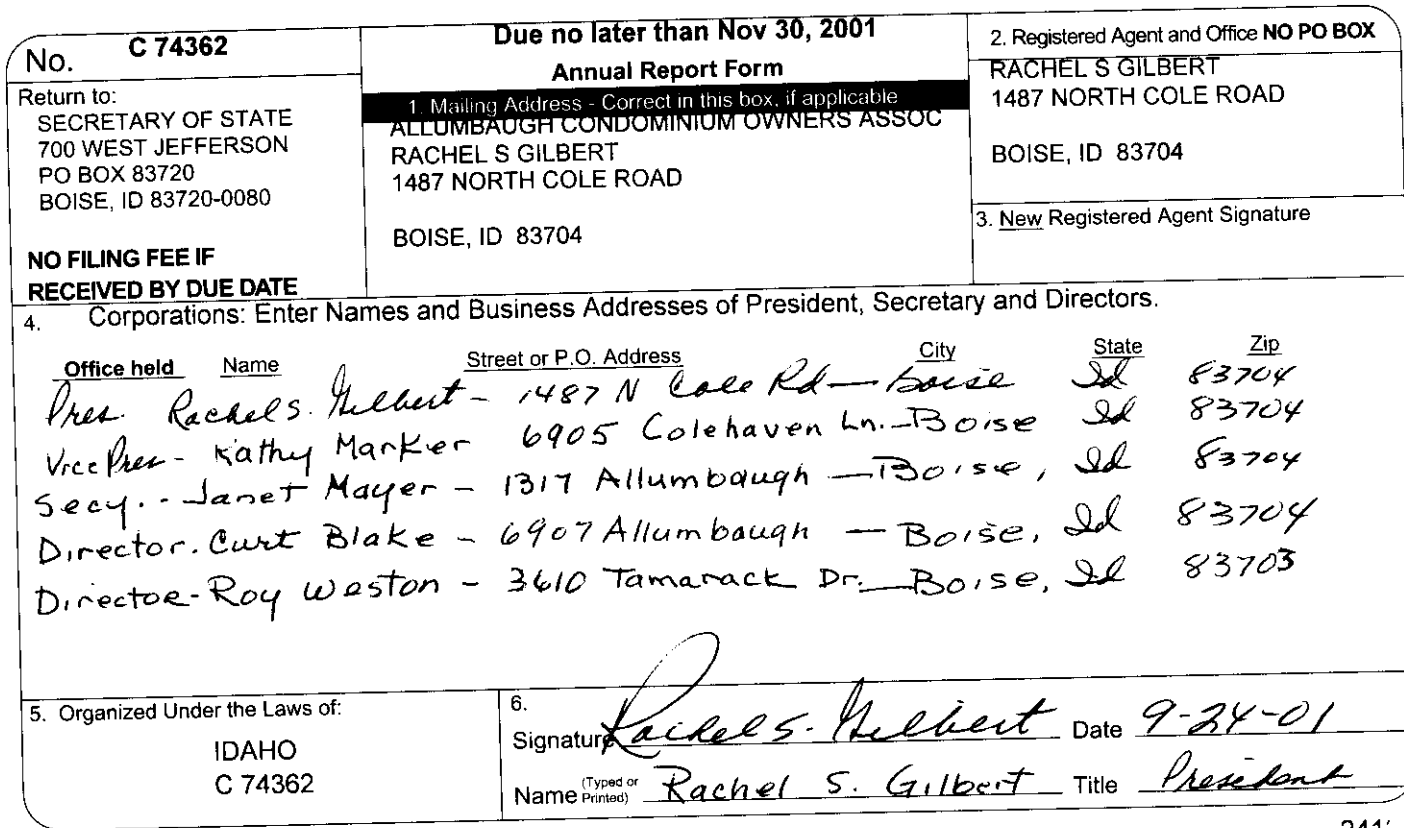 No. C 74362
Return to:
SECRETARY OF STATE
700 WEST JEFFERSON
PO BOX 83720
BOISE, ID 83720-0080
NO FILING FEE IF
RECEIVED BY DUE DATE
Due no later than Nov 30, 2001
Annual Report Form
1. Mailing Address - Correct in this box, if applicable
ALLUMBAUGH CONDOMINIUM OWNERS ASSOC
RACHEL S GILBERT
1487 NORTH COLE ROAD
BOISE, ID 83704
2. Registered Agent and Office NO PO BOX
RACHEL S GILBERT
1487 NORTH COLE ROAD
BOISE, ID 83704
3. New Registered Agent Signature
4. Corporations: Enter Names and Business Addresses of President, Secretary and Directors.
Office held Name Street or P.O. Address City State Zip
Pres. Rachel S. Gilbert - 1487 N Cole Rd - Boise Id 83704
Vice Pres - Kathy Marker 6905 Colehaven Ln. - Boise Id 83704
Secy. - Janet Mayer - 1317 Allumbaugh - Boise, Id 83704
Director. Curt Blake - 6907 Allumbaugh - Boise, Id 83704
Director - Roy Weston - 3610 Tamarack Dr. - Boise, Id 83703
5. Organized Under the Laws of:
IDAHO
C 74362
6.
Signature Rachel S. Gilbert Date 9-24-01
Name (Typed or Printed) Rachel S. Gilbert Title President